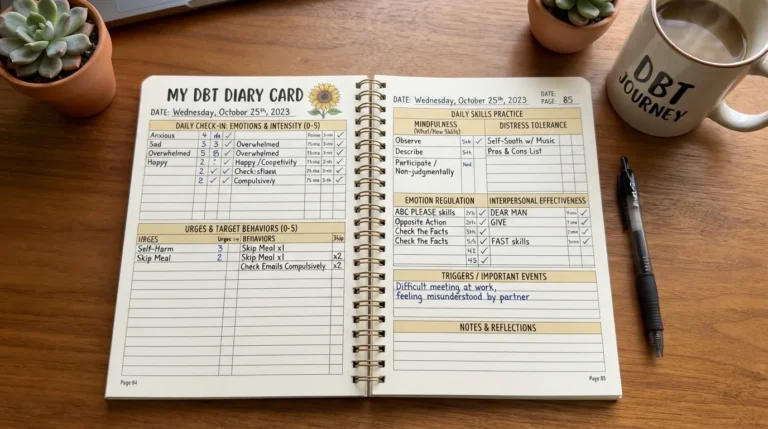 MY DBT DIARY CARD
DATE: Wednesday, October 25th, 2023
DAILY CHECK-IN: EMOTIONS & INTENSITY (0-5)
Anxious 4
Sad 3 3 Overwhelmed
Overwhelmed 5 Overwhelmed
Happy 2 Happy
2 Check
2 Compulsively
URGES & TARGET BEHAVIORS (0-5)
URGES Urges BEHAVIORS
Self-Harm 3 Skip Meal x1
Skip Meal 2 Skip Meal x1 x2
Check Emails Compulsively x2
Page 84
DATE: Wednesday, October 25th, 2023
DATE:
PAGE: 85
DAILY SKILLS PRACTICE
MINDFULNESS
(What/How Skills)
Observe
Describe
Participate /
Non-judgmentally
DISTRESS TOLERANCE
Self-Sooth w/ Music
Pros & Cons List
EMOTION REGULATION
ABC PLEASE skills
Opposite Action
Check the Facts
Check the Facts
42
45
INTERPERSONAL EFFECTIVENESS
DEAR MAN
GIVE
FAST skills
TRIGGERS / IMPORTANT EVENTS
Difficult meeting at work,
feeling misunderstood by partner
NOTES & REFLECTIONS
Page 85
DBT
JOURNEY